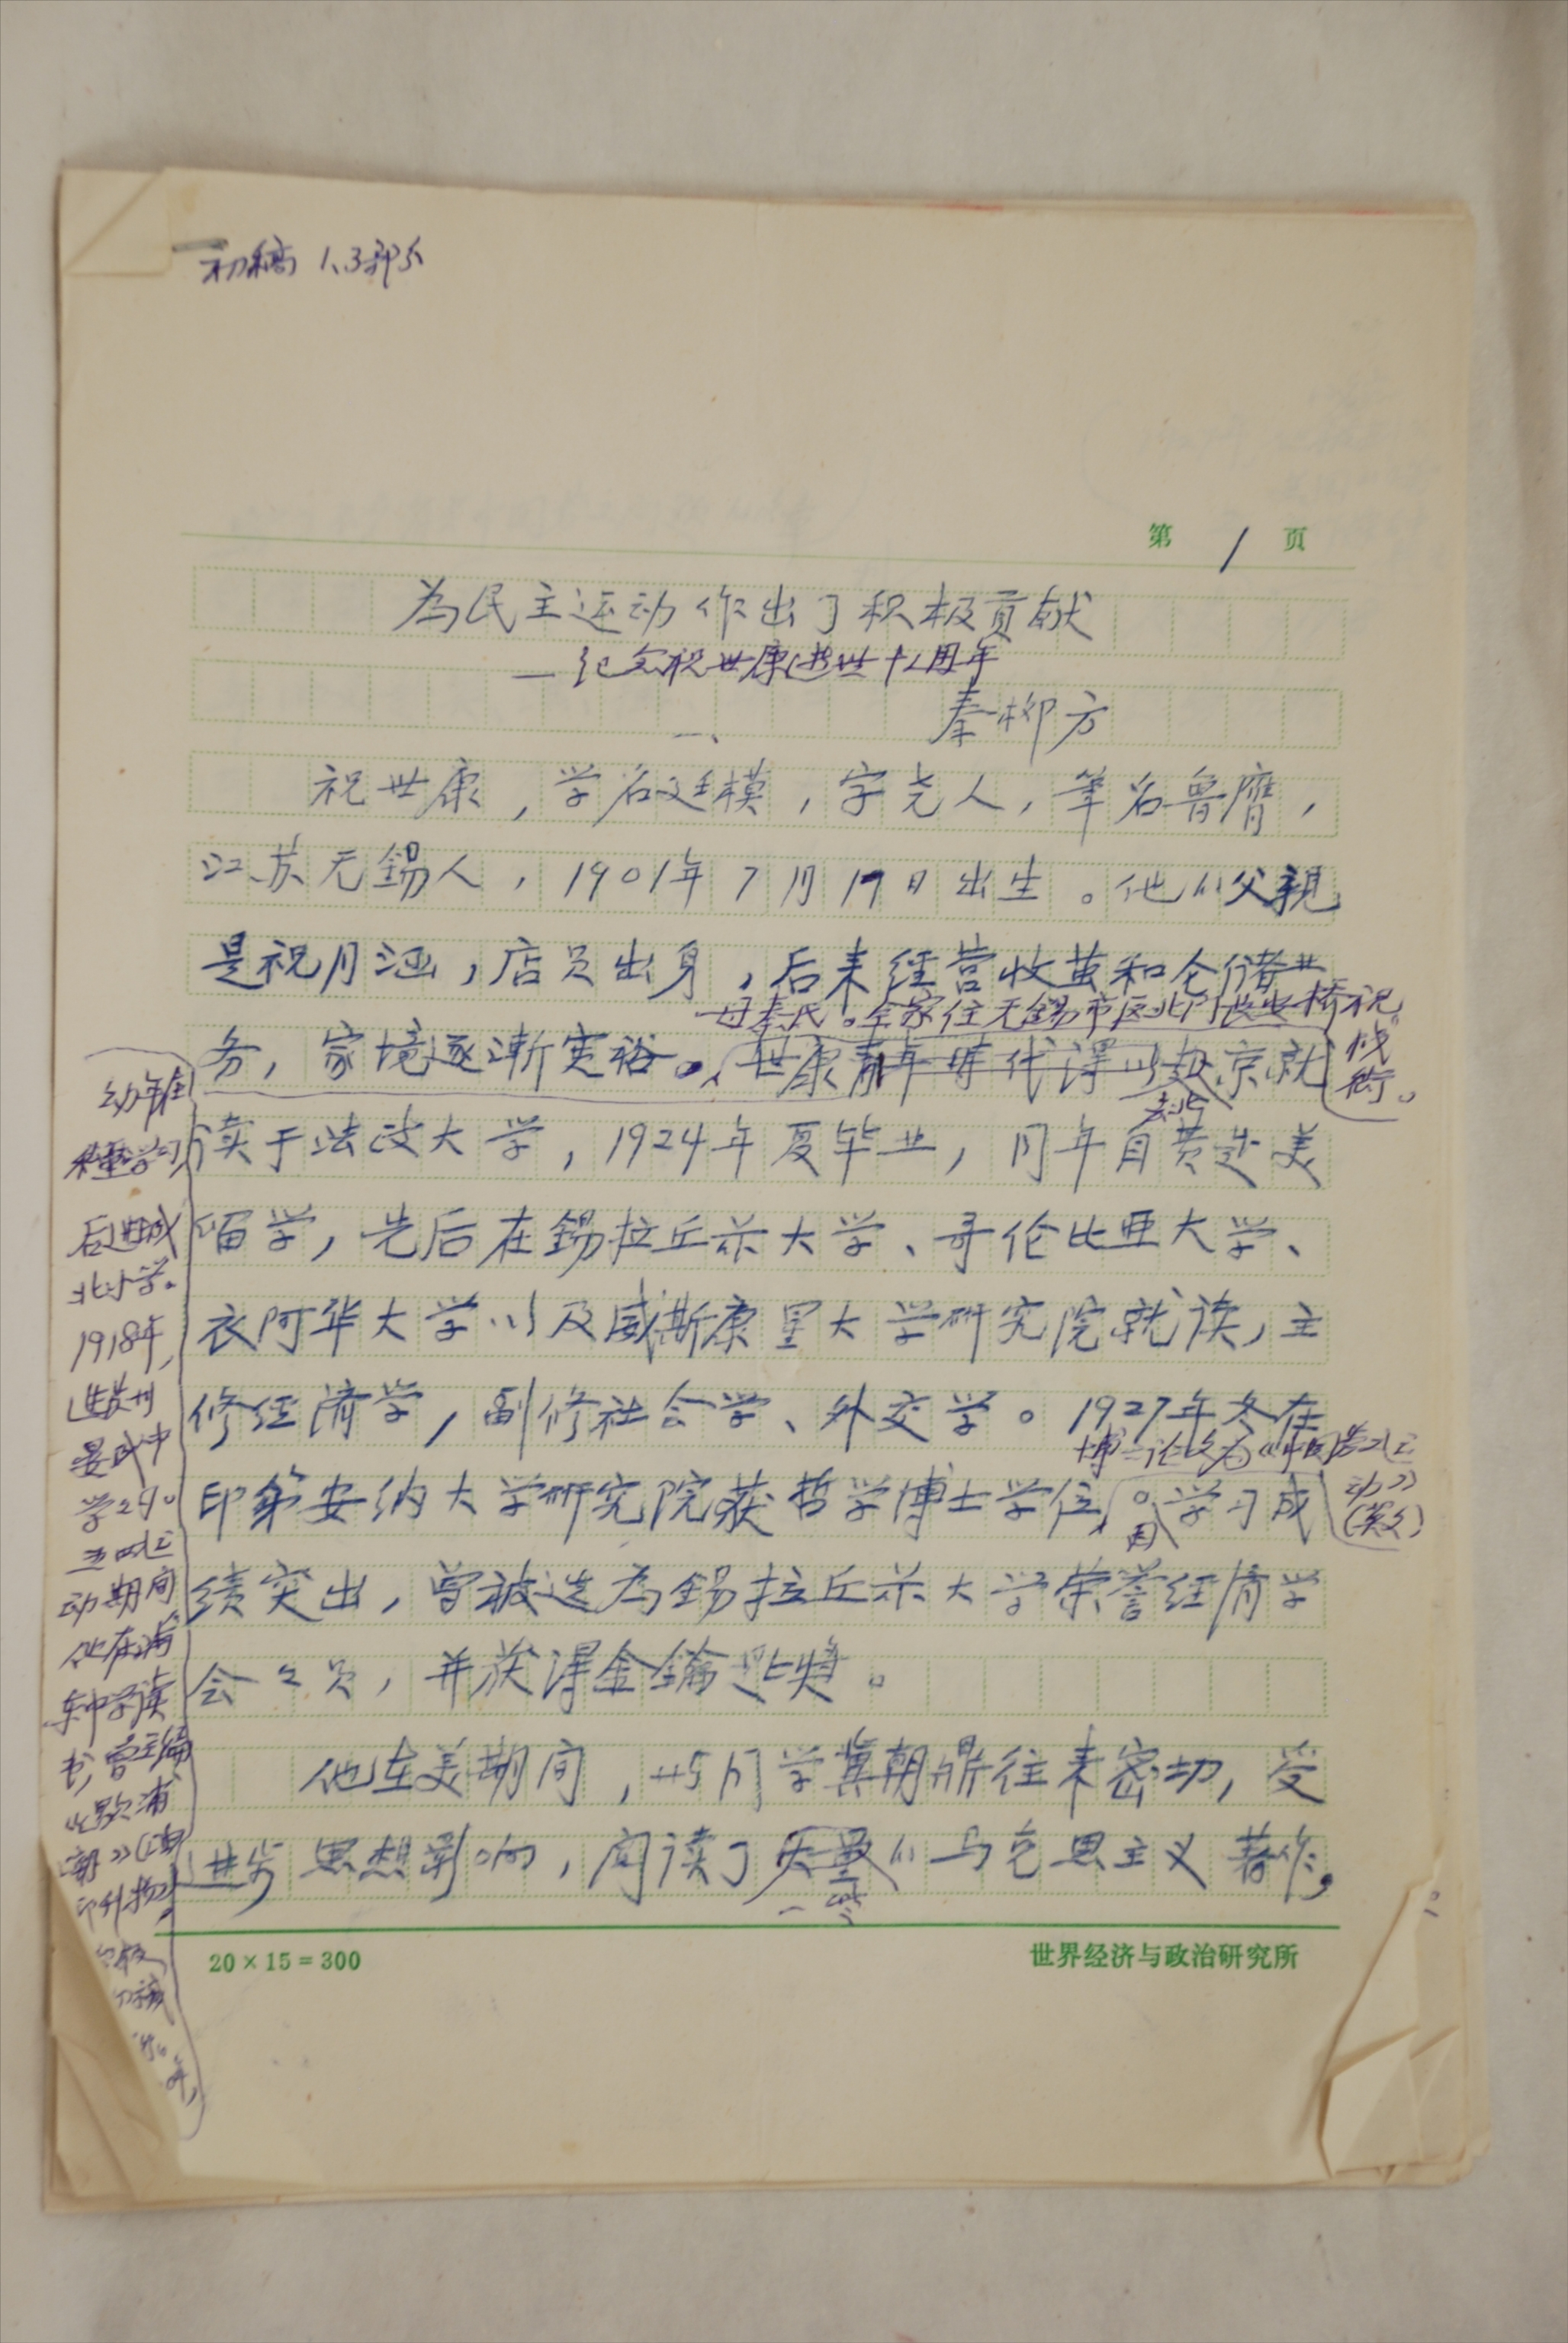 初稿 1、3部分
第 1 页
为民主运动作出了积极贡献
—纪念祝世康逝世十周年
秦柳方
一、
祝世康，学名廷模，字尧人，笔名鲁膺，
江苏无锡人，1901年7月17日出生。他的父親
是祝月涵，店员出身，后来经营收茧和仓储业
母秦氏。全家住无锡市区北门长安桥祝
栈衖。
务，家境逐渐宽裕。世康青年时代得以赴京就
去北
读于法政大学，1924年夏毕业，同年自费赴美
留学，先后在锡拉丘兹大学、哥伦比亚大学、
衣阿华大学以及威斯康星大学研究院就读，主
修经济学，副修社会学、外交学。1927年冬在
博士论文为《中国劳工运
动》
(英文)
印第安纳大学研究院获哲学博士学位。学习成
因
绩突出，曾被选为锡拉丘兹大学荣誉经济学
会会员，并获得金钥匙奖。
他在美期间，与同学冀朝鼎往来密切，受
进步思想影响，阅读了大量的马克思主义著作，
一些
幼年在
私塾学习
后进城
北小学。
1918年，
进苏州
晏成中
学学习。
五四运
动期间
他在浦
东中学读
书，曾主编
《黄浦
潮》(油
印刊物)，
20×15=300
世界经济与政治研究所